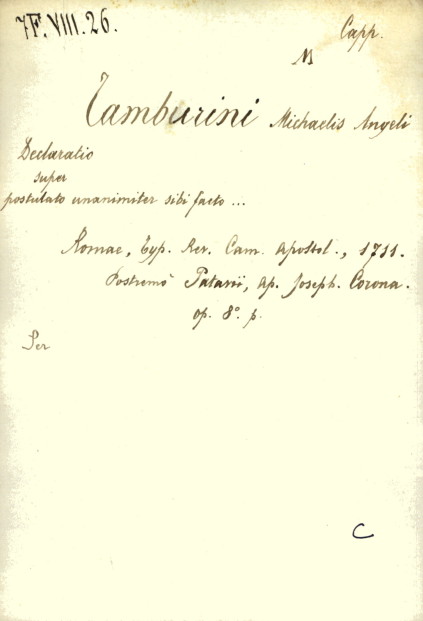 7F.VIII.26.
Capp.
M
Tamburini Michaelis Angeli
Declaratio
super
postulato unanimiter sibi facto ...
Romae, Typ. Rev. Cam. Apostol., 1711.
Postremò Patavii, ap. Joseph. Corona.
op. 8º. p.
Ser
C